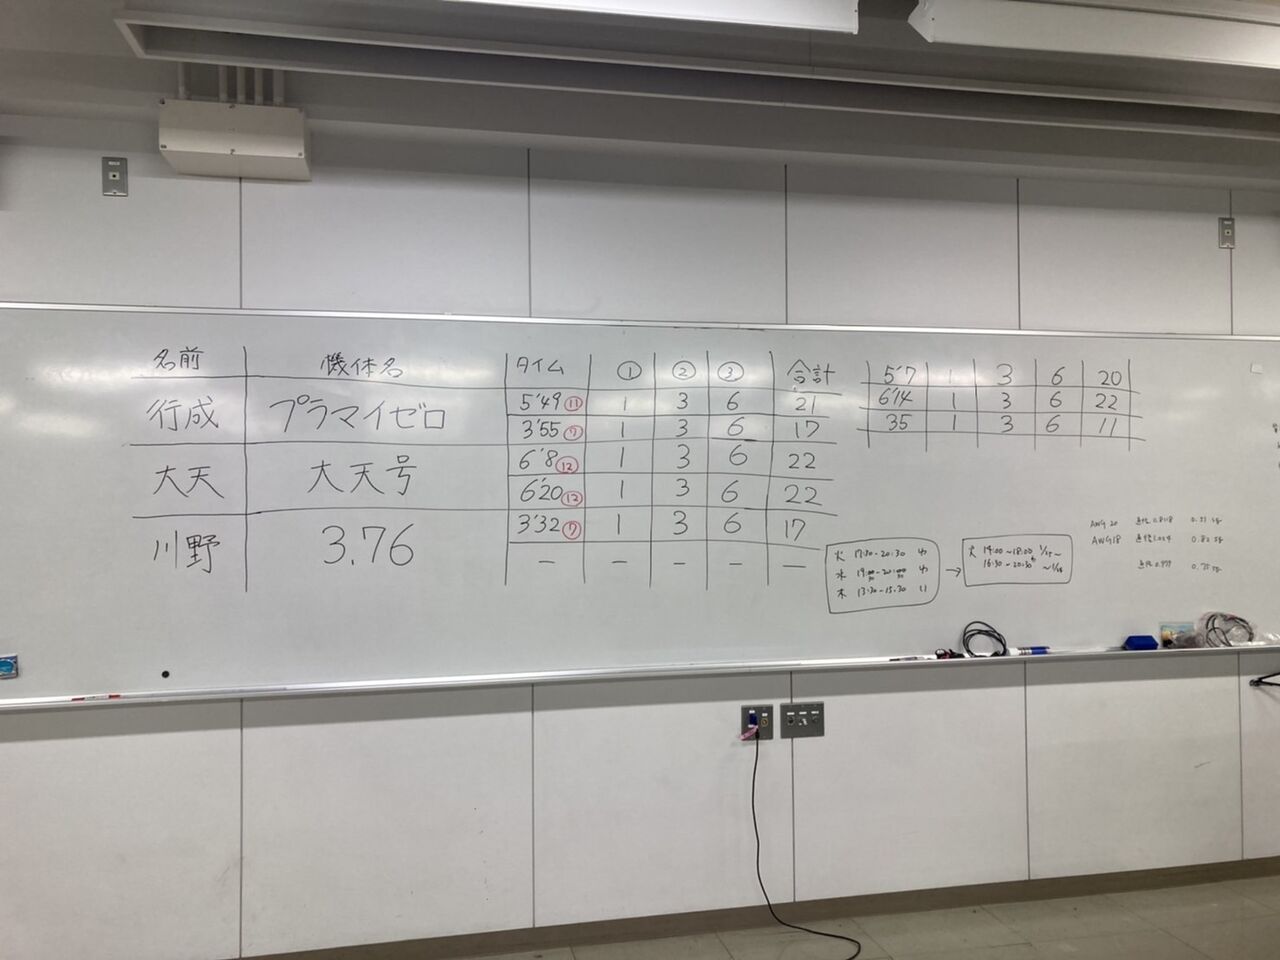 名前 機体名 タイム ① ② ③ 合計
行成 プラマイゼロ 5'49 ⑪ 1 3 6 21
3'55 ⑦ 1 3 6 17
大天 大天号 6'8 ⑫ 1 3 6 22
6'20 ⑫ 1 3 6 22
川野 3.76 3'32 ⑦ 1 3 6 17
— — — — —
5'7 1 3 6 20
6'14 1 3 6 22
35 1 3 6 11
火 17:30-20:30
水
木 13:30-15:30
→
火 14:00~18:00
16:30-20:30
AWG 20
AWG18 0.82 sq